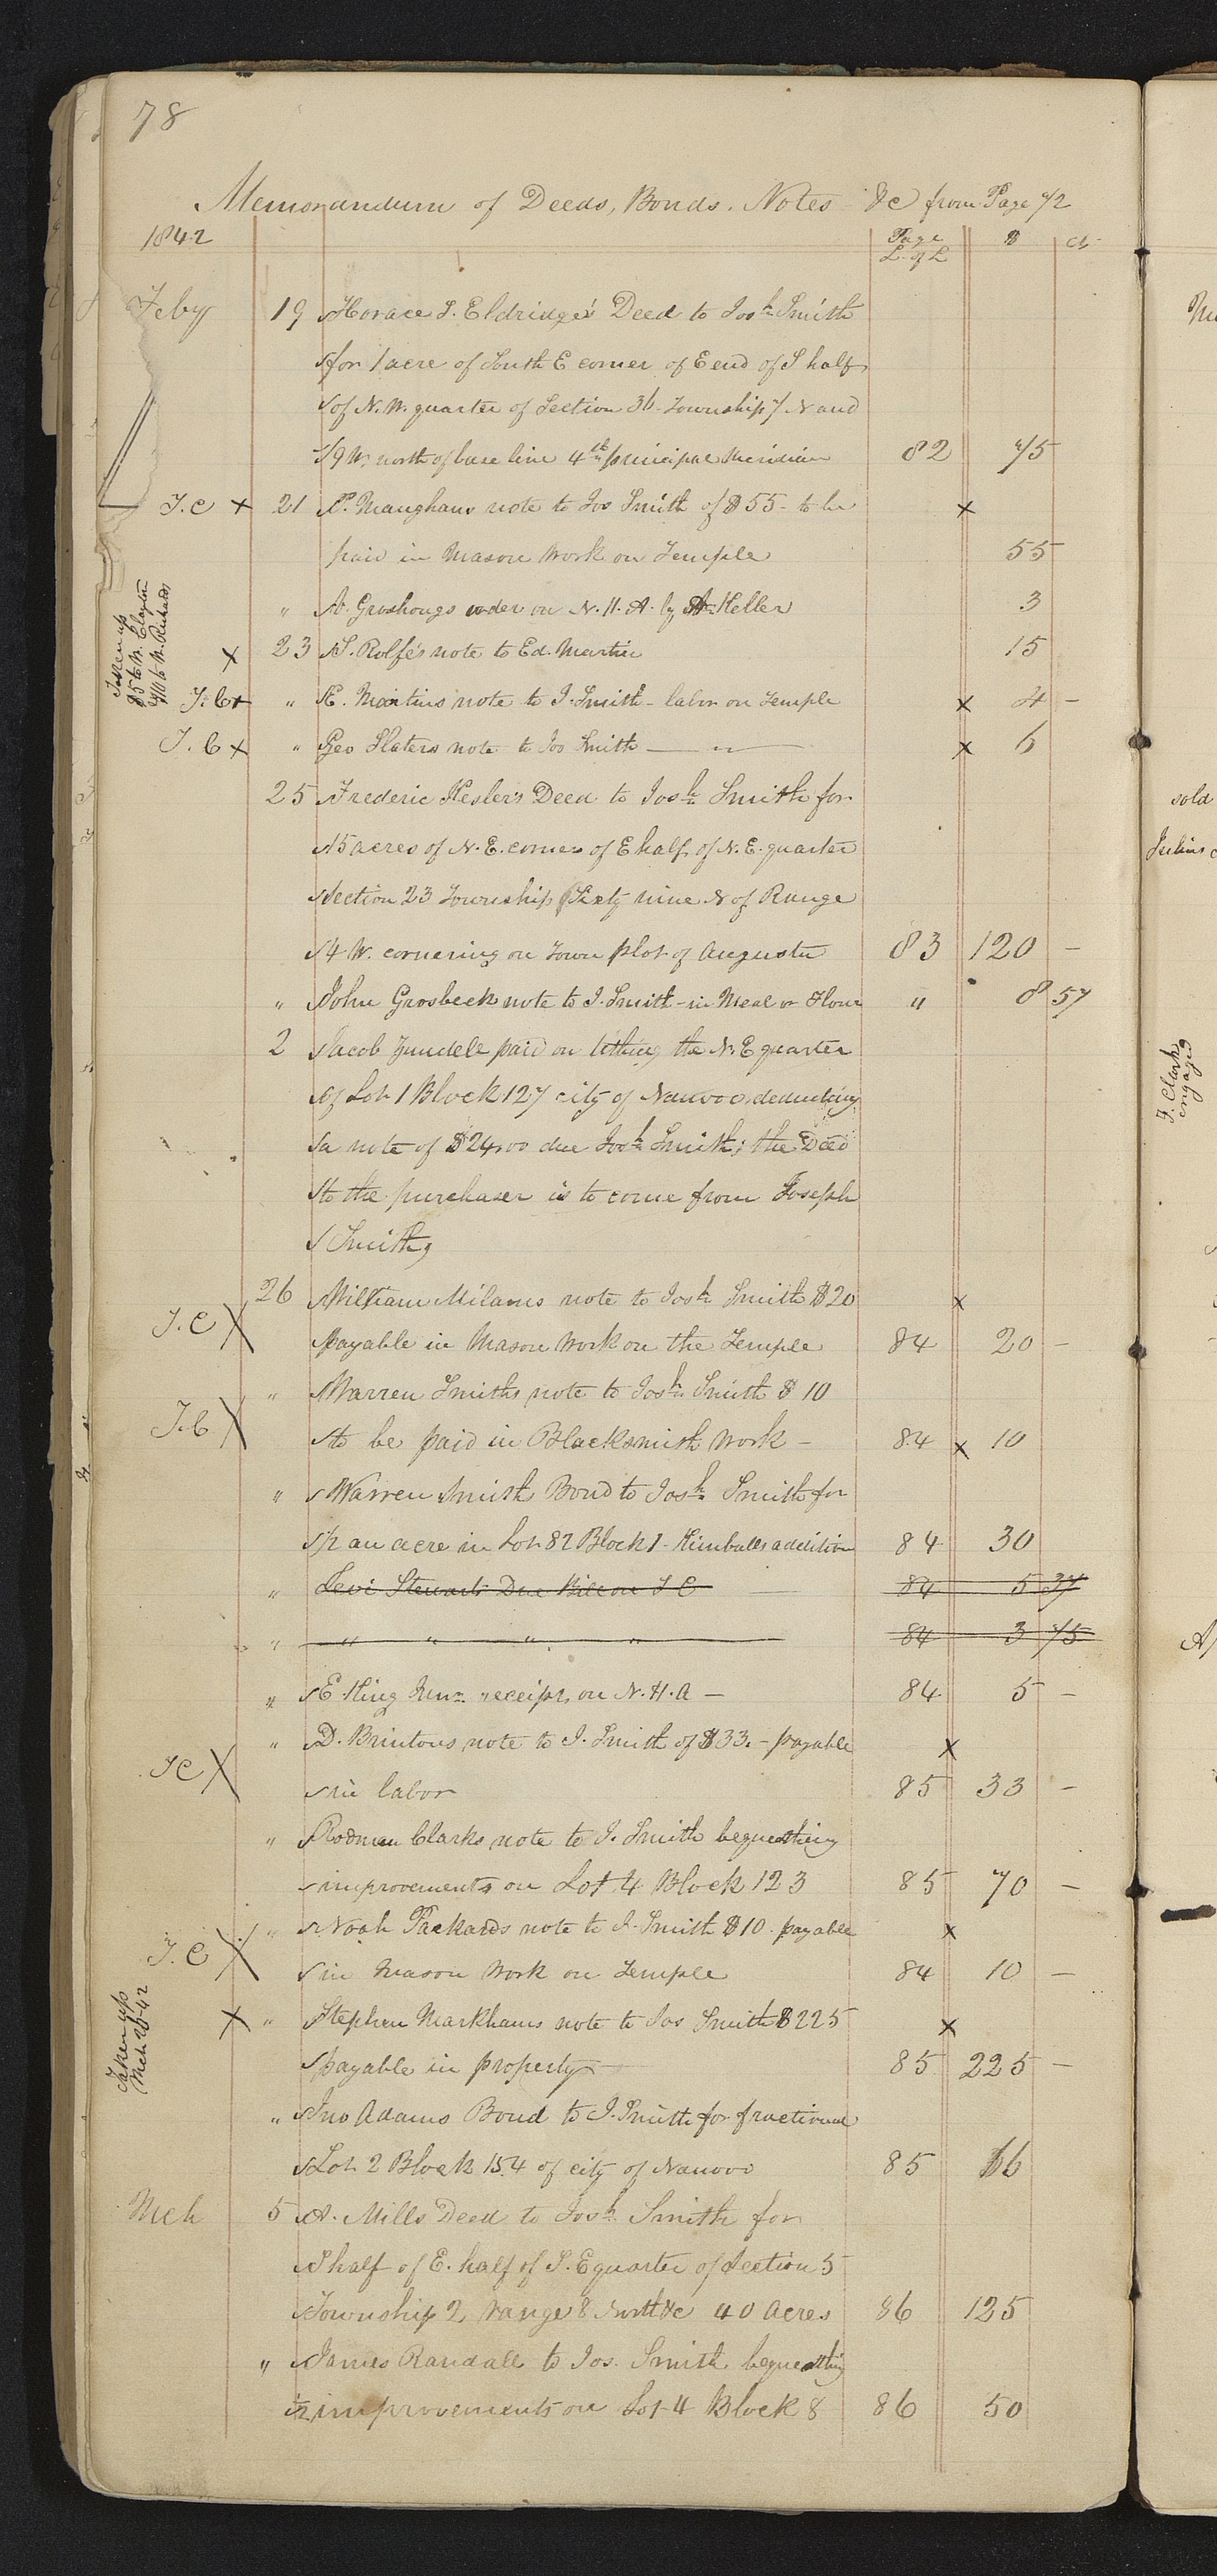 78
Memorandum of Deeds, Bonds. Notes &c from Page 72
1842 Page L. of L $ cts
Feby 19 Horace S. Eldridge's Deed to Josh Smith
for 1 acre of South E corner of E end of S half
of N. W. quarter of Section 36 Township 7 N and
9 W. north of base line 4th principal Meridian 82 75
T. C × 21 P. Maughans note to Jos Smith of $55 - to be ×
paid in Mason Work on Temple 55
" A. Groshongs order on N. H. A. by A Keller 3
Taken up
$5 to W. Clayton
$10 to W. Richards
× 23 S. Rolfe's note to Ed. Martin 15
T. C × " E. Martins note to J. Smith - labor on Temple × 4 -
T. C × " Geo Slaters note to Jos Smith — " — × 6
25 Frederic Kesler's Deed to Josh Smith for
15 acres of N. E. corner of E half of N. E. quarter
Section 23 Township Sixty nine N of Range
4 W. cornering on Town plot of Augusta 83 120 -
" John Grosbeck note to J. Smith - in Meal or Flour " 8 57
2 Jacob Zundell paid on tithing the N. E quarter
of Lot 1 Block 127 city of Nauvoo, deducting
a note of $24,00 due Josh Smith; the Deed
to the purchaser is to come from Joseph
Smith,
26 William Milams note to Josh Smith $20 ×
T. C × payable in Mason Work on the Temple 84 20 -
" Warren Smiths note to Josh Smith $10
T. C × to be paid in Blacksmith Work - 84 × 10
" Warren Smith Bond to Josh Smith for
1/2 an acre in Lot 82 Block 1 - Kimballs addition 84 30
" Levi Stewarts Due Bill on T C 84 5 37
" " " " " 84 3 75
" E King Junr receipt on N. H. A - 84 5 -
" D. Brintons note to J. Smith of $33. - payable ×
T C × in labor 85 33 -
" Rodman Clarks note to J. Smith bequeathing
improvements on Lot 4 Block 123 85 70 -
" Noah Packards note to J. Smith $10. payable ×
T. C × in Mason Work on Temple 84 10 -
Taken up
Mch 26-42
× " Stephen Markhams note to Jos Smith $225 ×
payable in property 85 225 -
" Jno Adams Bond to J. Smith for fractional
Lot 2 Block 154 of city of Nauvoo 85 66
Mch 5 A. Mills Deed to Josh Smith for
S half of E. half of S. E quarter of Section 5
Township 2, range 8 North &c 40 Acres 86 125
" James Randall to Jos. Smith bequeathing
1/2 improvements on Lot 4 Block 8 86 50
sold
J. Clark
engaged